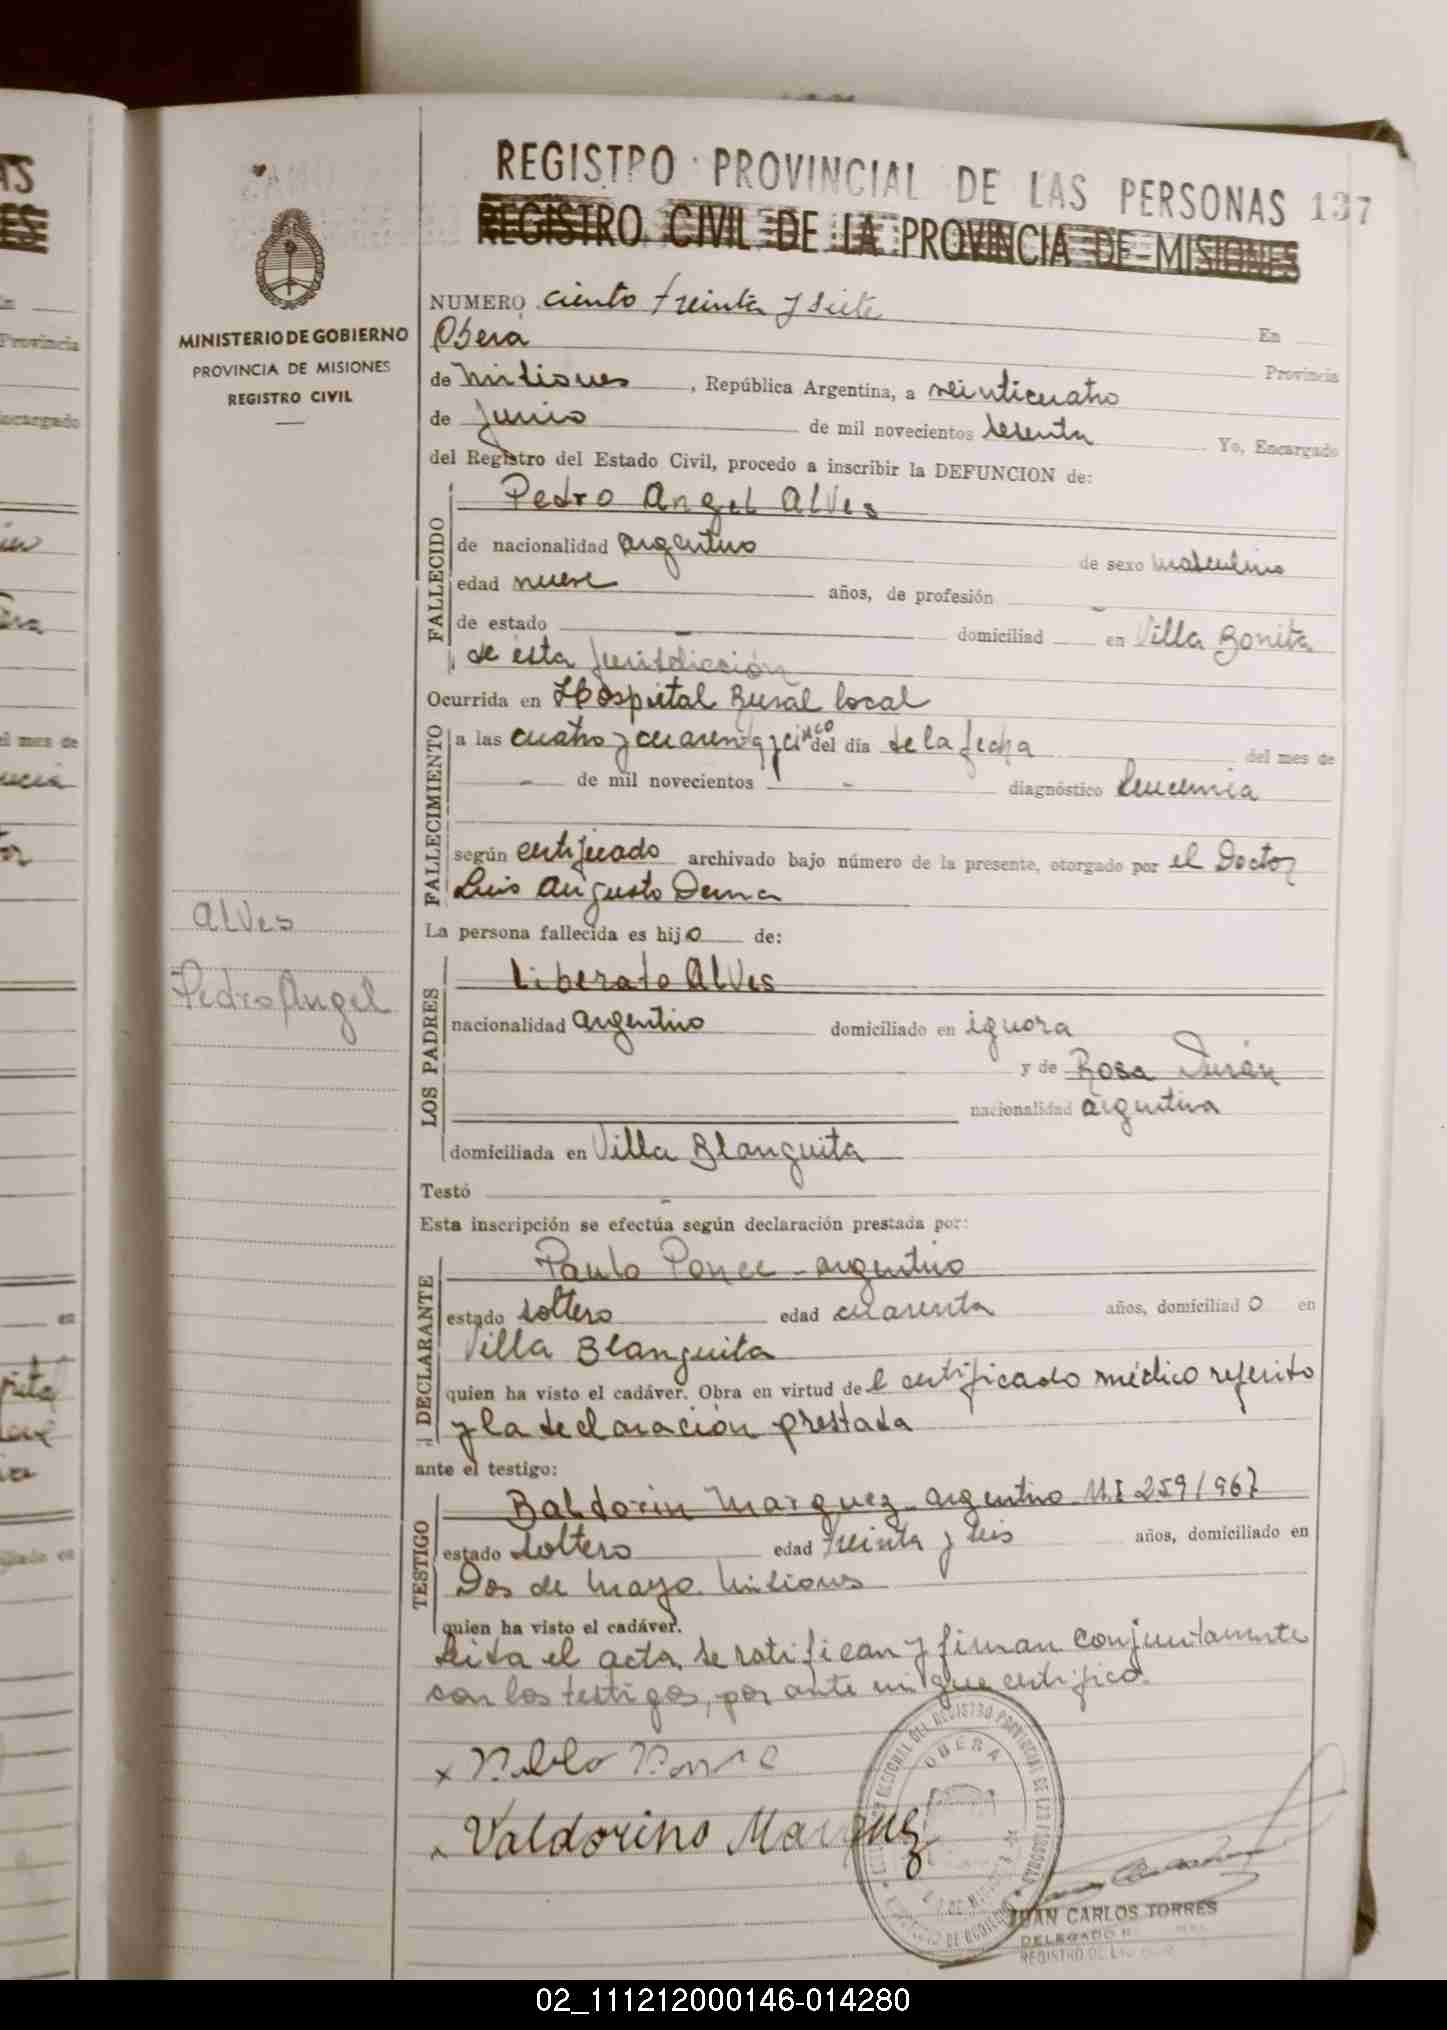 REGISTRO PROVINCIAL DE LAS PERSONAS 137
REGISTRO CIVIL DE LA PROVINCIA DE MISIONES
MINISTERIO DE GOBIERNO
PROVINCIA DE MISIONES
REGISTRO CIVIL
NUMERO ciento treinta y siete En
Oberá Provincia
de Misiones, República Argentina, a veinticuatro
de Junio de mil novecientos sesenta Yo, Encargado
del Registro del Estado Civil, procedo a inscribir la DEFUNCION de:
FALLECIDO
Pedro Angel Alves
de nacionalidad argentino de sexo masculino
edad nueve años, de profesión -
de estado - domiciliad en Villa Bonita
de ésta Jurisdicción
FALLECIMIENTO
Ocurrida en Hospital Rural local
a las cuatro y cuarenta y cinco del día de la fecha del mes de
- de mil novecientos - diagnóstico Leucemia
según certificado archivado bajo número de la presente, otorgado por el Doctor
Luis Augusto
La persona fallecida es hijo de:
Alves
Pedro Angel
LOS PADRES
Liberato Alves
nacionalidad argentino domiciliado en ignora
y de Rosa Durán
nacionalidad argentina
domiciliada en Villa Blanquita
Testó -
Esta inscripción se efectúa según declaración prestada por:
DECLARANTE
Paulo Ponce - argentino
estado soltero edad cuarenta años, domiciliado en
Villa Blanquita
quien ha visto el cadáver. Obra en virtud del certificado médico referito
y la declaración prestada
ante el testigo:
TESTIGO
Baldorin Marquez - argentino M.I 259/967
estado soltero edad treinta y seis años, domiciliado en
Dos de Mayo Misiones
quien ha visto el cadáver.
Leida el acta, se ratifican y firman conjuntamente
con los testigos, por ante mi que certifico.
x Ponce
x Valdorino Marquez
OBERA
JUAN CARLOS TORRES
DELEGADO
REGISTRO DE LAS
02_111212000146-014280